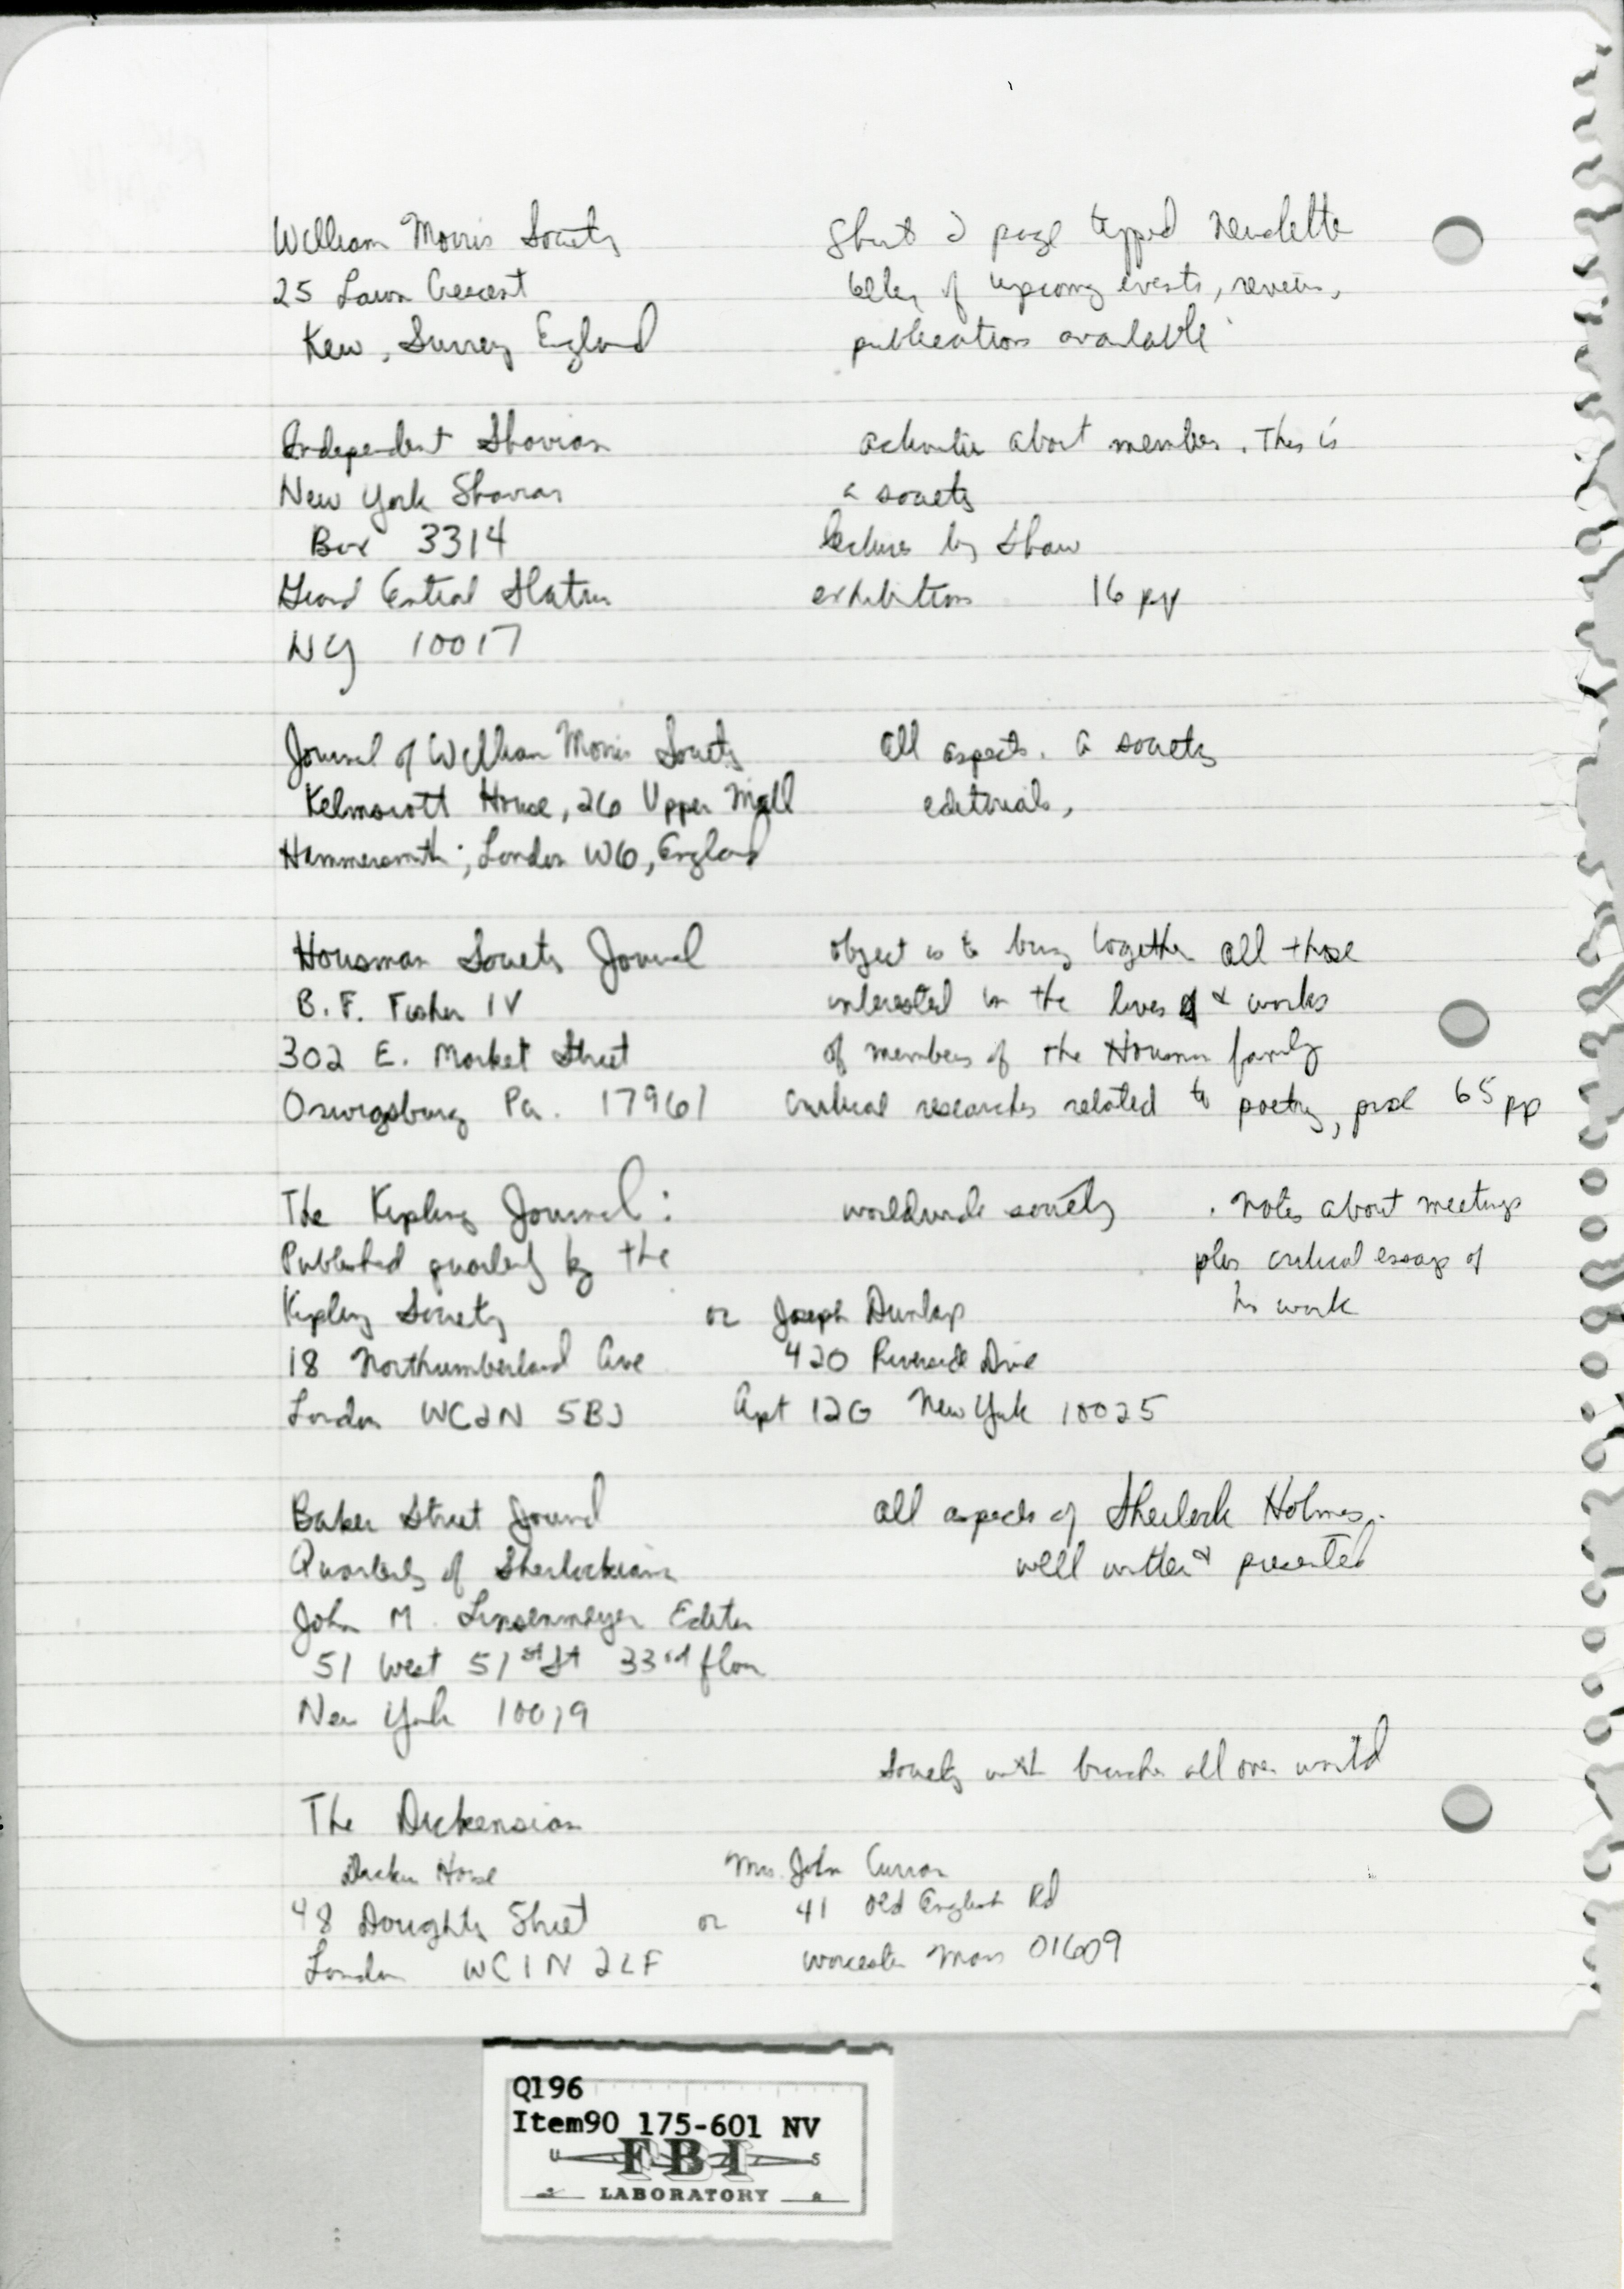 William Morris Society
25 Lawn Crescent
Kew, Surrey England
Short 2 page typped newslette
of upcoming events, reviews,
publications available
Independent Shavian
New York Shavian
Box 3314
Grand Central Station
NY 10017
activities about members. This is
a society
lectures by Shaw
exhibitions 16 pp
Journal of William Morris Society
Kelmscott House, 26 Upper Mall
Hammersmith; London W6, England
All aspects. a society
editorials,
Housman Society Journal
B. F. Fisher IV
302 E. Market Street
Orwigsburg Pa. 17961
object is to bring together all those
interested in the lives & works
of members of the Housman family
critical researches related to poetry, prose 65 pp
The Kipling Journal:
Published quarterly by the
Kipling Society
18 Northumberland Ave
London WC2N 5BJ
worldwide society . Notes about meetings
plus critical essays of
his work
or Joseph Dunlap
420 Riverside Drive
Apt 12G New York 10025
Baker Street Journal
Quarterly of Sherlockiana
John M. Linsenmeyer Editor
51 West 51st St 33rd floor
New York 10019
all aspects of Sherlock Holmes.
well written & presented
Society with branches all over world
The Dickensian
Dickens House
48 Doughty Street
London WC1N 2LF
or
Mrs. John Curran
41 Old English Rd
Worcester Mass 01609
Q196
Item90 175-601 NV
FBI
LABORATORY